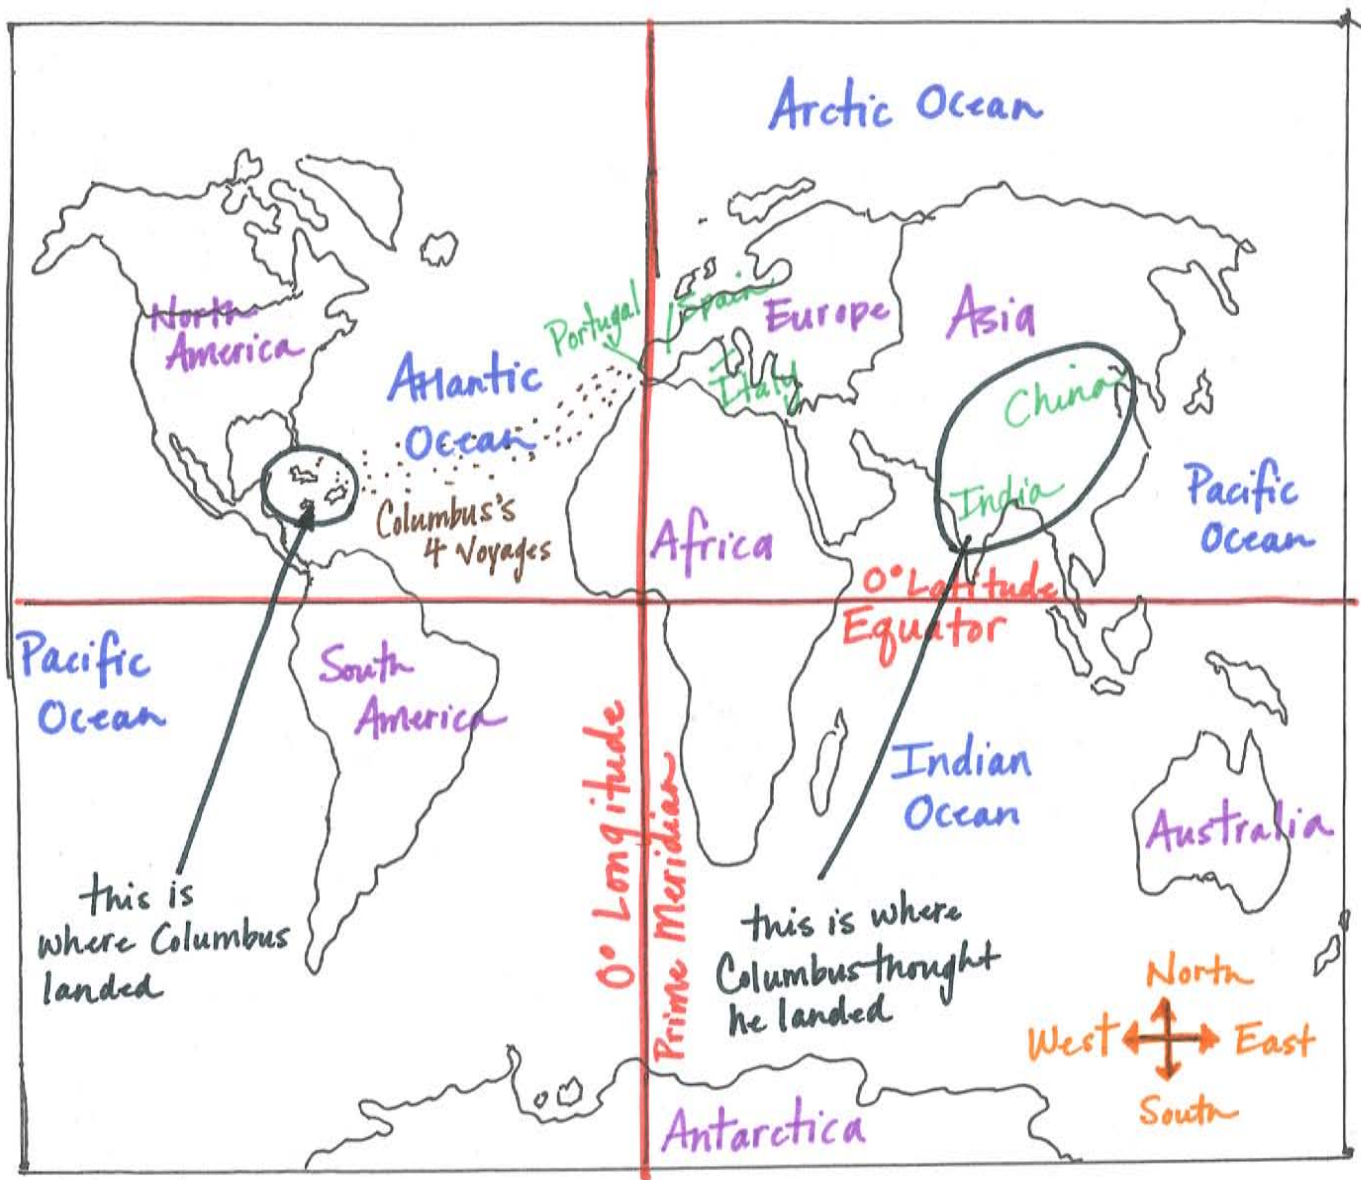 Arctic Ocean
North
America
Portugal
Spain
Europe
Asia
Atlantic
Ocean
Italy
China
India
Pacific
Ocean
Columbus's
4 Voyages
Africa
0° Latitude
Equator
Pacific
Ocean
South
America
0° Longitude
Prime Meridian
Indian
Ocean
Australia
this is
where Columbus
landed
this is where
Columbus thought
he landed
North
West
East
South
Antarctica